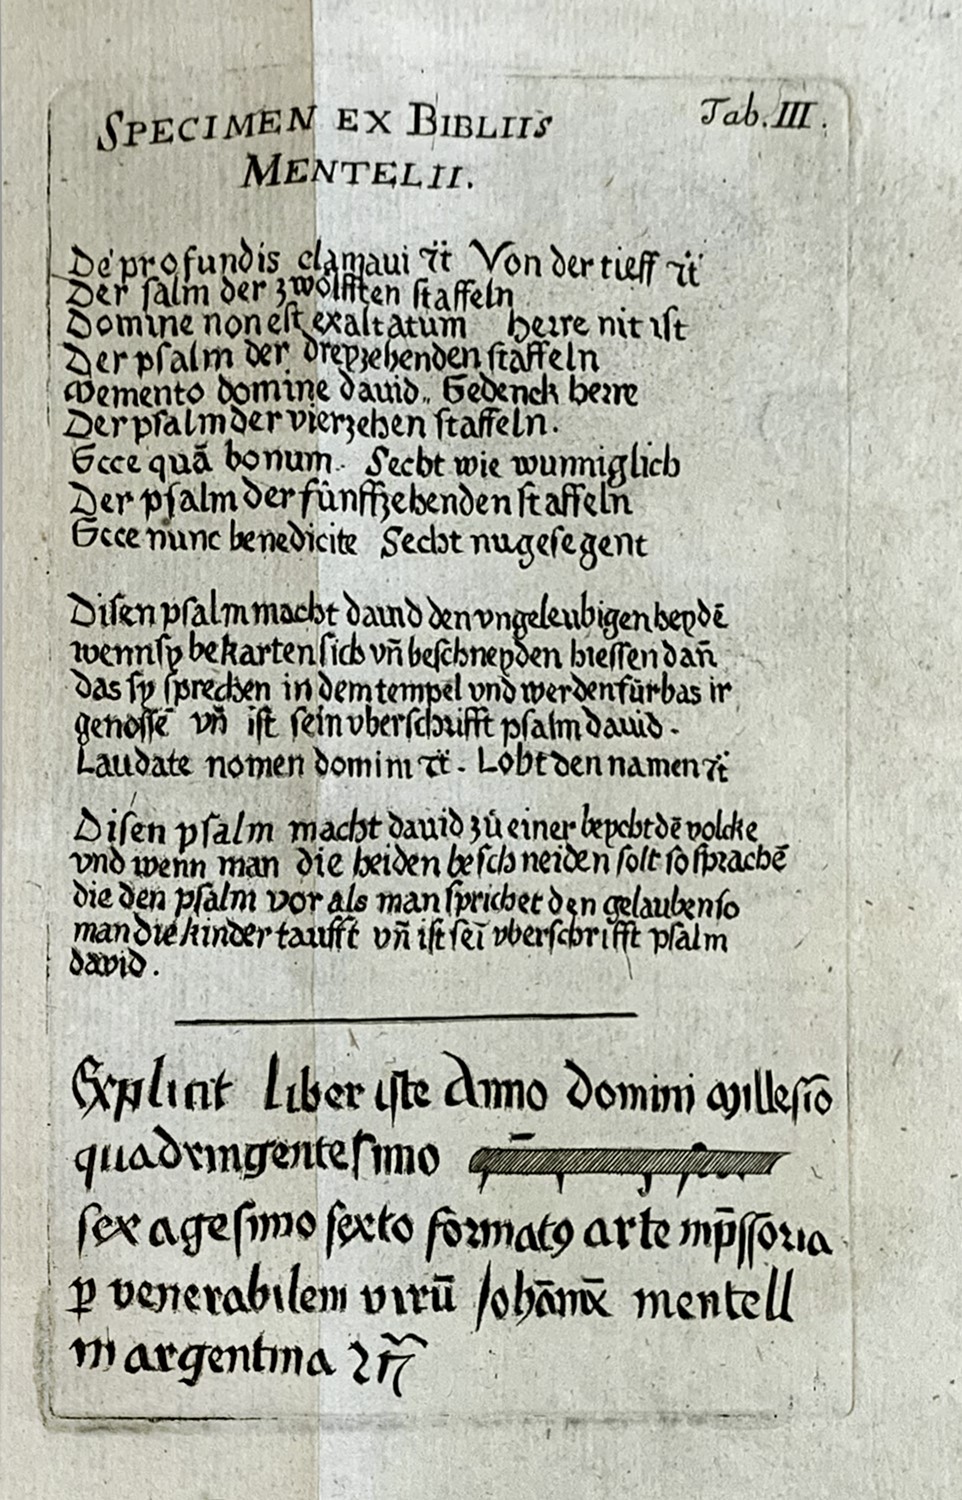 SPECIMEN EX BIBLIIS Tab. III.
MENTELII.
De profundis clamaui ⁊c̈ Von der tieff ⁊c̈
Der salm der zwölfften staffeln
Domine non est exaltatum herre nit ist
Der psalm der dreyzehenden staffeln
Memento domine dauid.. Gedenck herre
Der psalm der vierzehen staffeln.
Ecce quā bonum.. Secht wie wunniglich
Der psalm der fünffzehenden staffeln
Ecce nunc benedicite Secht nu gesegent
Disen psalm macht dauid den vngeleubigen heydē
wenn sy bekarten sich vn̄ beschneyden hiessen dan̄
das sy sprechen in dem tempel vnd werden fürbas ir
genossē vn̄ ist sein vberschrifft psalm dauid.
Laudate nomen domini ⁊c̈. Lobt den namen ⁊c̈
Disen psalm macht dauid zů einer beycht dē volcke
vnd wenn man die heiden beschneiden solt so sprachē
die den psalm vor als man sprichet den gelauben so
man die kinder taufft vn̄ ist seī vberschrifft psalm
david.
Explicit liber iste Anno domini Millesīo
quadringentesimo
sexagesimo sexto formatꝯ arte imp̄ssoria
ꝑ venerabilem virū Johānē mentell
in argentina